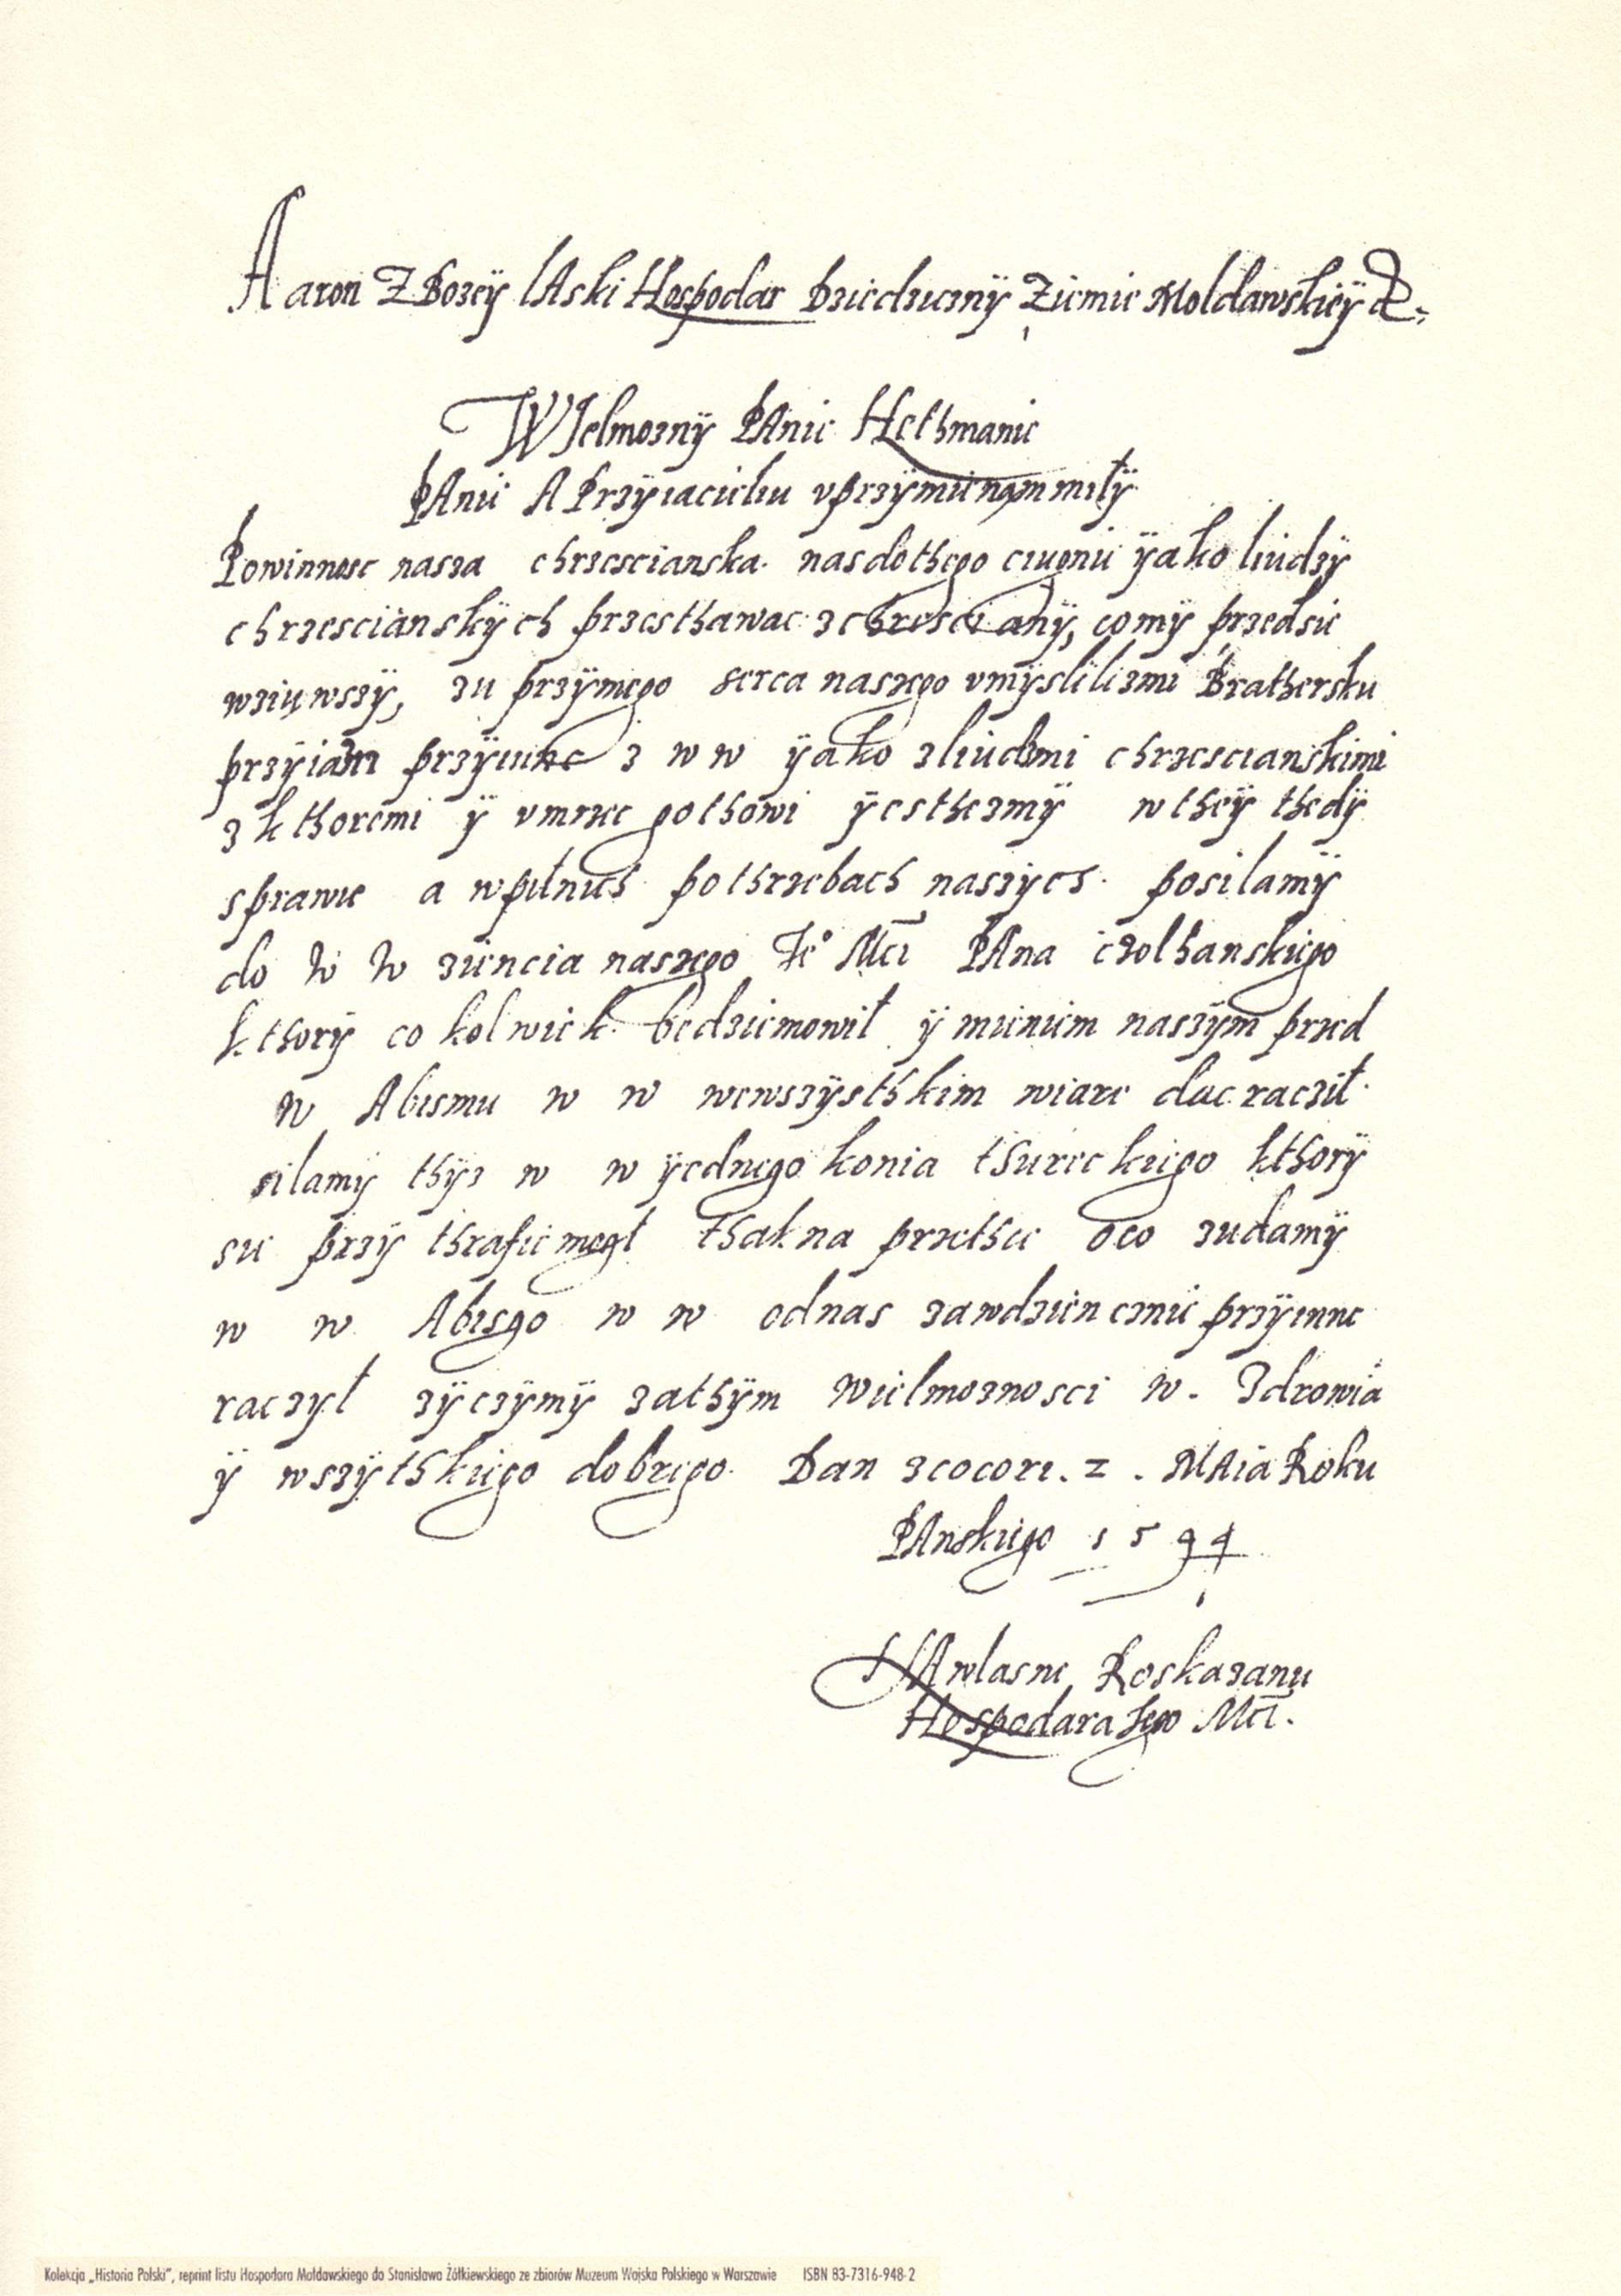 Aaron Z Bozey lAski Hospodar Dziedziczny Ziemie Moldawskiey &
WJelmozny PAnie Hethmanie
PAnie A Przyiacieliu vprzymie nam miły
Powinnosc nasza chrzescianska nasdothego ciugnie ÿako liudzÿ
chrzescianskÿch przesthawac z chresciany, co mÿ przedsie
wziuwszÿ, zu przÿmego serca naszego vmÿslilizmi Bratherskie
przÿiazn przÿiunc z w w ÿako zliudzmi chrzescianskimi
z kthoremi ÿ vmrzec gothowi ÿesthezmÿ w theÿ thedÿ
sprawie a wpilnich pothrzebach naszÿch posilamÿ
do W W ziencia naszego Je° Mci PAna czolhanskiego
kthorÿ co kolwiek bedziemowił ÿ mieniem naszÿm przed
W Abismu w w wewszÿsthkim wiare dac racził
silamÿ thÿz w w ÿednego konia thureckiego kthorÿ
sie przÿ thrafic mogł thak na przethce oco zudamÿ
w w Abisgo w w odnas zawdziencznie przÿiunc
raczył zÿczÿmÿ zathÿm wielmoznosci w. Zdrowia
ÿ wszÿthkiego dobrego Dan zcocore. 2. MAia Roku
PAnskiego 1594
NAwlasne Roskazanie
Hospodara Jego Mci.
Kolekcja „Historia Polski”, reprint listu Hospodara Mołdawskiego do Stanisława Żółkiewskiego ze zbiorów Muzeum Wojska Polskiego w Warszawie ISBN 83-7316-948-2